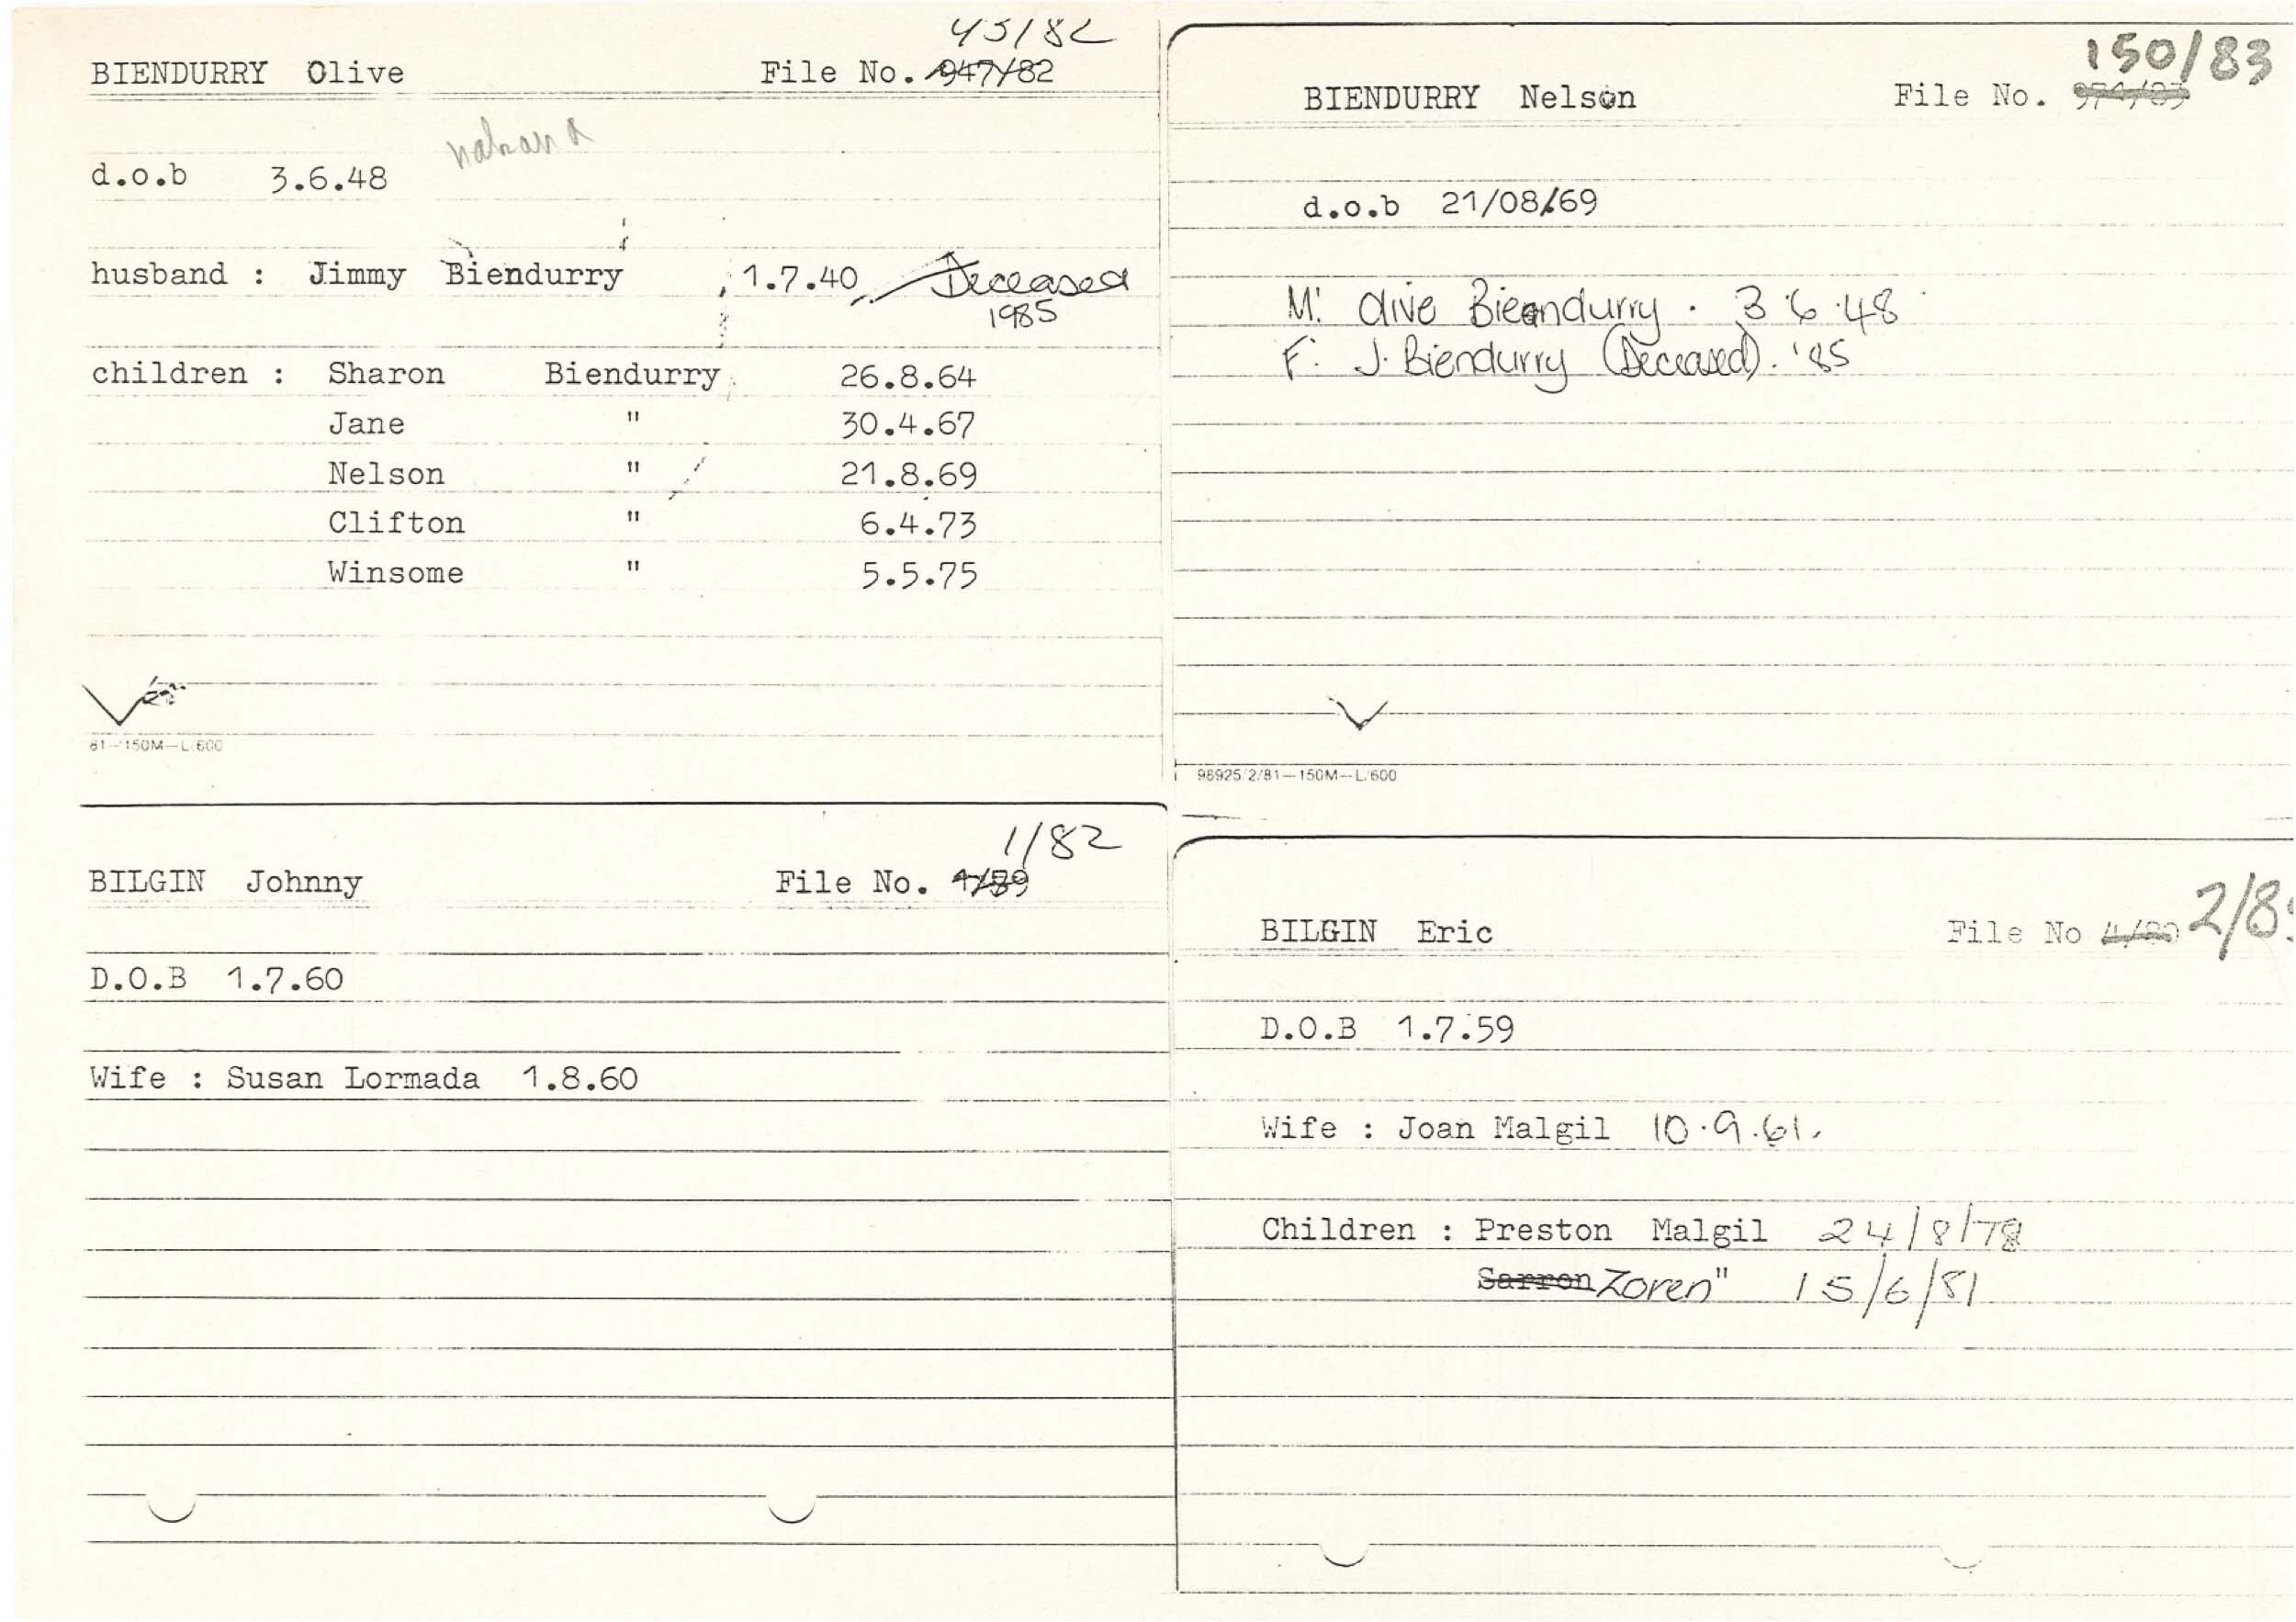 43/82
BIENDURRY Olive File No. 947/82
d.o.b 3.6.48
husband : Jimmy Biendurry 1.7.40 Deceased
1985
children : Sharon Biendurry 26.8.64
Jane " 30.4.67
Nelson " 21.8.69
Clifton " 6.4.73
Winsome " 5.5.75
81-150M-L/600
150/83
BIENDURRY Nelson File No.
d.o.b 21/08/69
M: Olive Bieandurry . 3.6.48
F: J. Biendurry (Deceased). '85
98925/2/81-150M-L/600
1/82
BILGIN Johnny File No.
D.O.B 1.7.60
Wife : Susan Lormada 1.8.60
BILGIN Eric File No
D.O.B 1.7.59
Wife : Joan Malgil 10.9.61.
Children : Preston Malgil 24/8/78
Sarron Zoren " 15/6/81